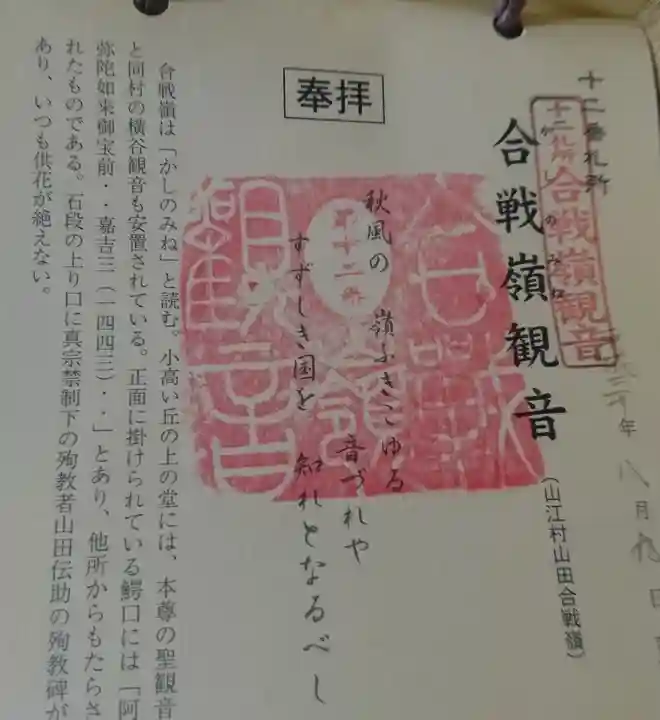 十二番札所
合戦嶺観音
かしのみね
合戦嶺観音
(山江村山田合戦嶺)
年八月九日
奉拝
秋風の 嶺ふきこゆる 音づれや
すずしき国を 知れとなるべし
第十二番
合戦嶺
観音
合戦嶺は「かしのみね」と読む。小高い丘の上の堂には、本尊の聖観音
と同村の横谷観音も安置されている。正面に掛けられている鰐口には「阿
弥陀如来御宝前・・嘉吉三(一四四三)・・」とあり、他所からもたらさ
れたものである。石段の上り口に真宗禁制下の殉教者山田伝助の殉教碑が
あり、いつも供花が絶えない。